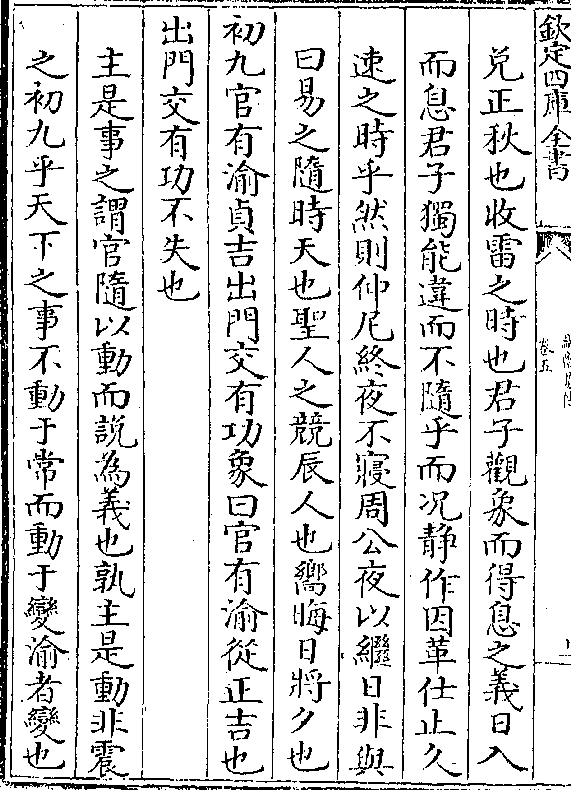 欽定四庫全書
卷五
兌正秋也收雷之時也君子觀象而得息之義日入
而息君子獨能違而不隨乎而况静作因革仕止久
速之時乎然則仲尼終夜不寢周公夜以繼日非與
曰易之隨時天也聖人之競辰人也嚮晦日將夕也
初九官有渝貞吉出門交有功象曰官有渝從正吉也
出門交有功不失也
主是事之謂官隨以動而說為義也孰主是動非震
之初九乎天下之事不動于常而動于變渝者變也